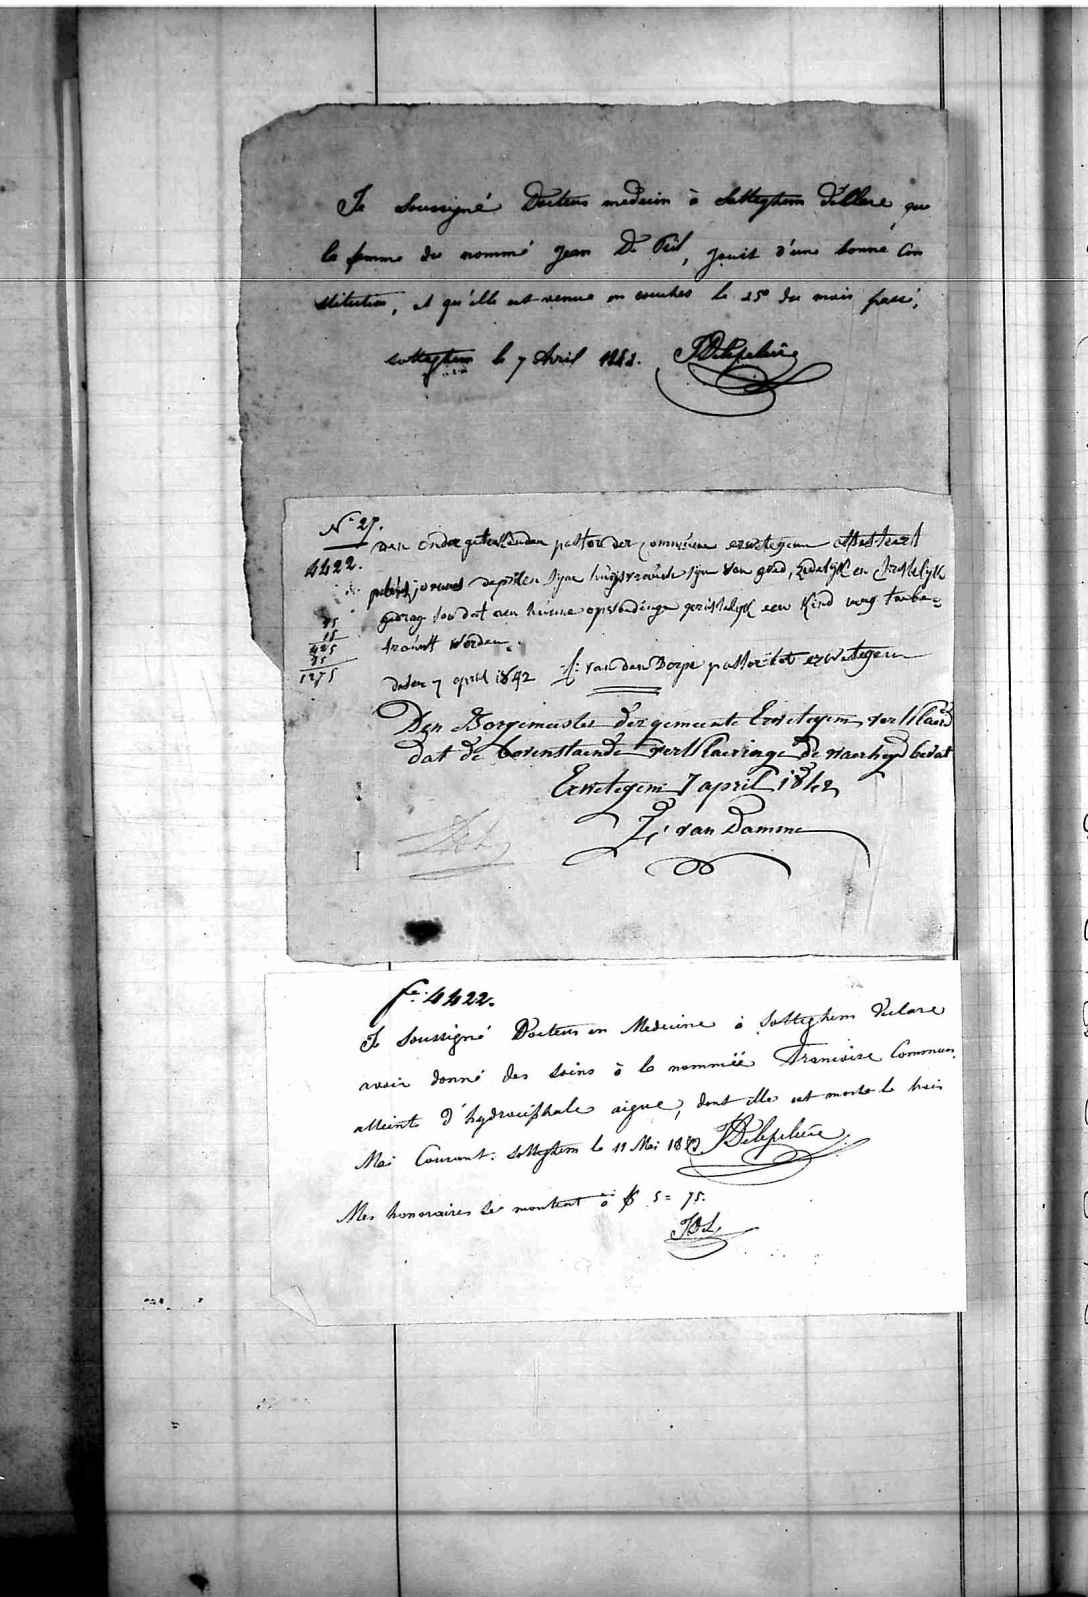 Je Soussigné Docteur medecin à Sotteghem déclare que
la femme du nommé Jean De Pril, jouit d'une bonne Con
stitution, et qu'elle est venue en couches le 25e du mois passé,
sotteghem le 7 Avril 1842. JDelepeleire
N.° 27.
4422.
den ondergetekenden pastor der commune erwetegem attesteert
dat joannes depril en syne huysvrouwe syn van goed, zedelyk en christelyk
gedrag soo dat aen hunne opvoedinge gerustelyk een Kind mag toebe=
trouwt worden.
75
15
425
85
1275
daten 7 april 1842 f: van den Dorpe pastor tot erwetegem
Den Borgemeester der gemeente Erwetegem verklaerd
dat de bovenstaende verklaeringe de waerheyd bevat
Erwetegem 7 april 1842
Z, van Damme
fe. 4422.
Je Soussigné Docteur en Medecine à Sotteghem declare
avoir donné des soins à la nommée Francoise Commun,
atteinte d'hydrocephale aigue, dont elle est morte le trois
Mai Courant. Sotteghem le 11 Mai 1842 JDelepeleire
Mes honoraires se montent à fs 5 = 75.
JDeL